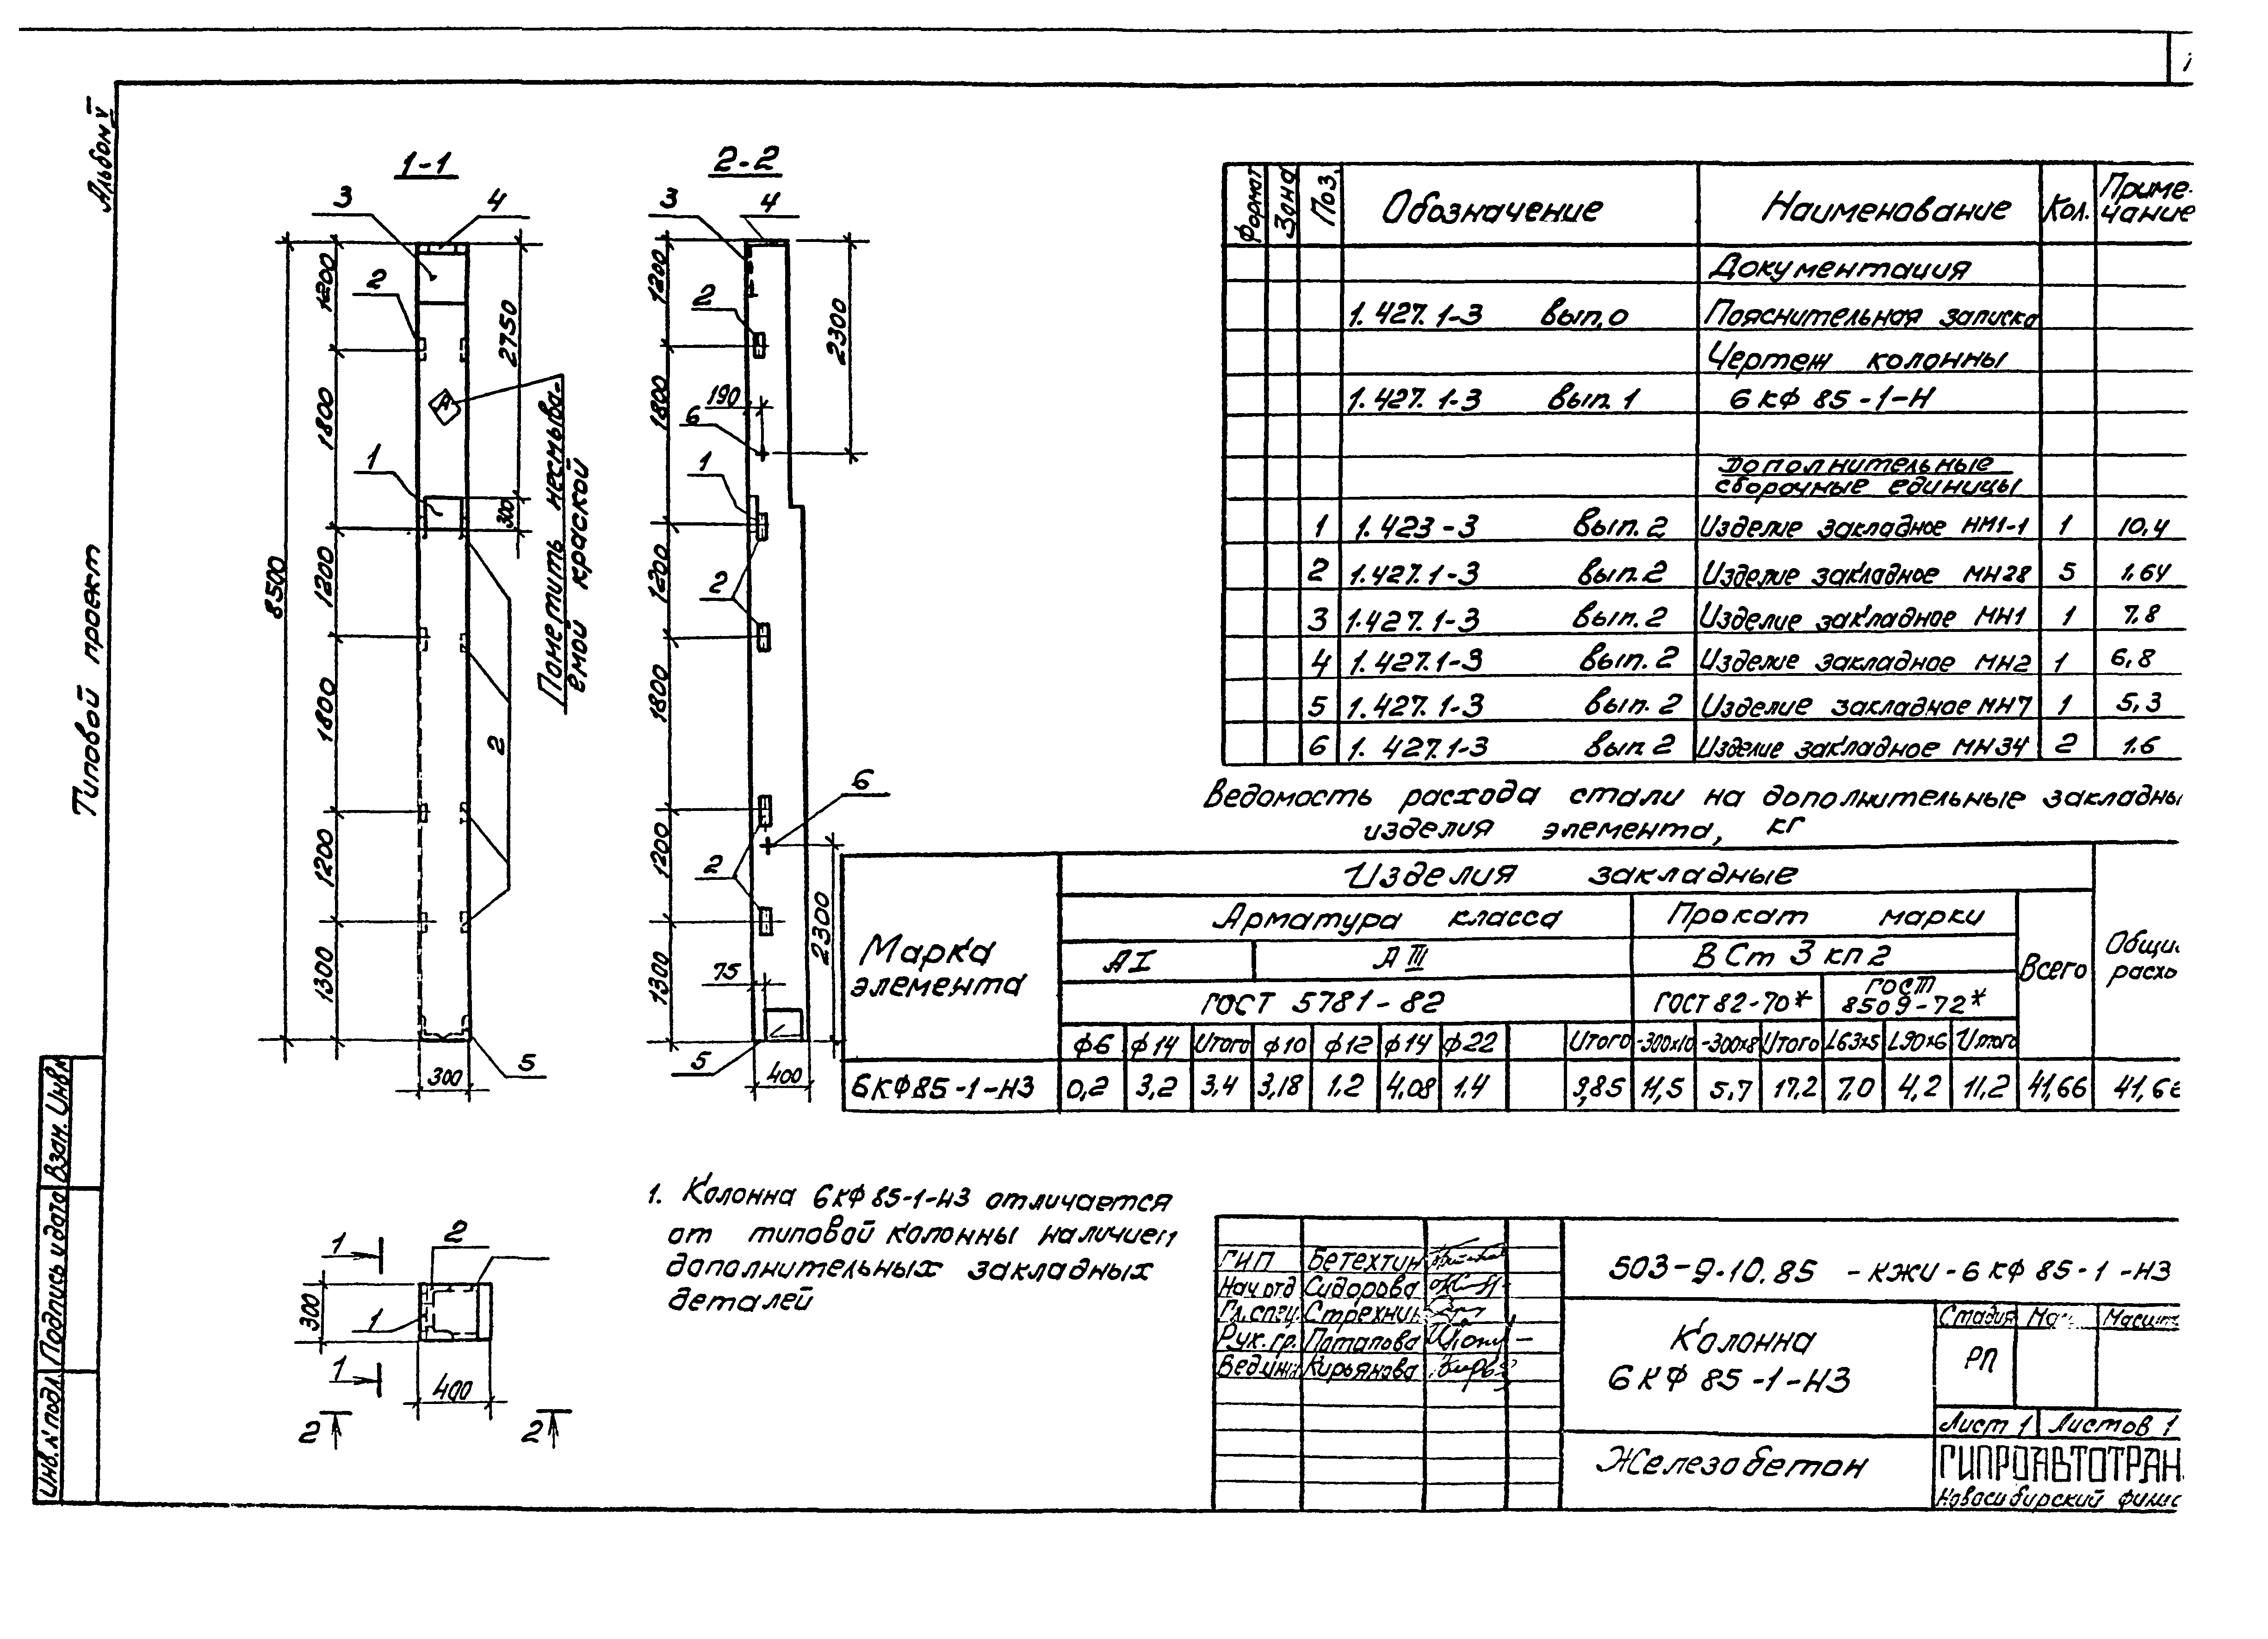 Альбом V
Типовой проект
1-1
3
4
2
1200
1800
1200
1800
1200
1300
8500
2750
300
1
2
А
Пометить несмыва-
емой краской
5
300
2-2
3
4
1200
1800
1200
1800
1200
1300
2
190
6
1
2
2
6
75
5
400
2300
2300
Формат Зона Поз. Обозначение Наименование Кол. Приме-
чание
Документация
1.427.1-3 вып.0 Пояснительная записка
Чертеж колонны
1.427.1-3 вып.1 6КФ85-1-Н
Дополнительные
сборочные единицы
1 1.423-3 вып.2 Изделие закладное НМ1-1 1 10,4
2 1.427.1-3 вып.2 Изделие закладное МН28 5 1.64
3 1.427.1-3 вып.2 Изделие закладное МН1 1 7.8
4 1.427.1-3 вып.2 Изделие закладное МН2 1 6,8
5 1.427.1-3 вып.2 Изделие закладное МН7 1 5,3
6 1.427.1-3 вып.2 Изделие закладное МН34 2 1.6
Ведомость расхода стали на дополнительные закладны
изделия элемента, кг
Марка
элемента
Изделия закладные
Арматура класса Прокат марки
АI АIII ВСт3кп2
Всего
Общи
расхо
ГОСТ 5781-82 ГОСТ 82-70* ГОСТ
8509-72*
ф6 ф14 Итого ф10 ф12 ф14 ф22 Итого -300х10 -300х8 Итого L63х5 L90х6 Итого
6КФ85-1-Н3 0,2 3,2 3,4 3,18 1.2 4,08 1.4 9,85 11,5 5.7 17.2 7,0 4,2 11,2 41,66 41,6
1. Колонна 6КФ85-1-Н3 отличается
от типовой колонны наличием
дополнительных закладных
деталей
1
2
300
1
1
400
2
2
Взам. Инв.
Подпись и дата
Инв.№ подл.
ГИП Бетехтин
Нач отд Сидорова
Гл.спец. Стрехнин
Рук.гр. Потапова
Вед.инж Кирьянова
503-9-10.85 -КЖИ-6КФ85-1-Н3
Колонна
6КФ85-1-Н3
Стадия Масшт
РП
Лист 1 Листов 1
Железобетон
ГИПРОАВТОТРАН
Новосибирский фили